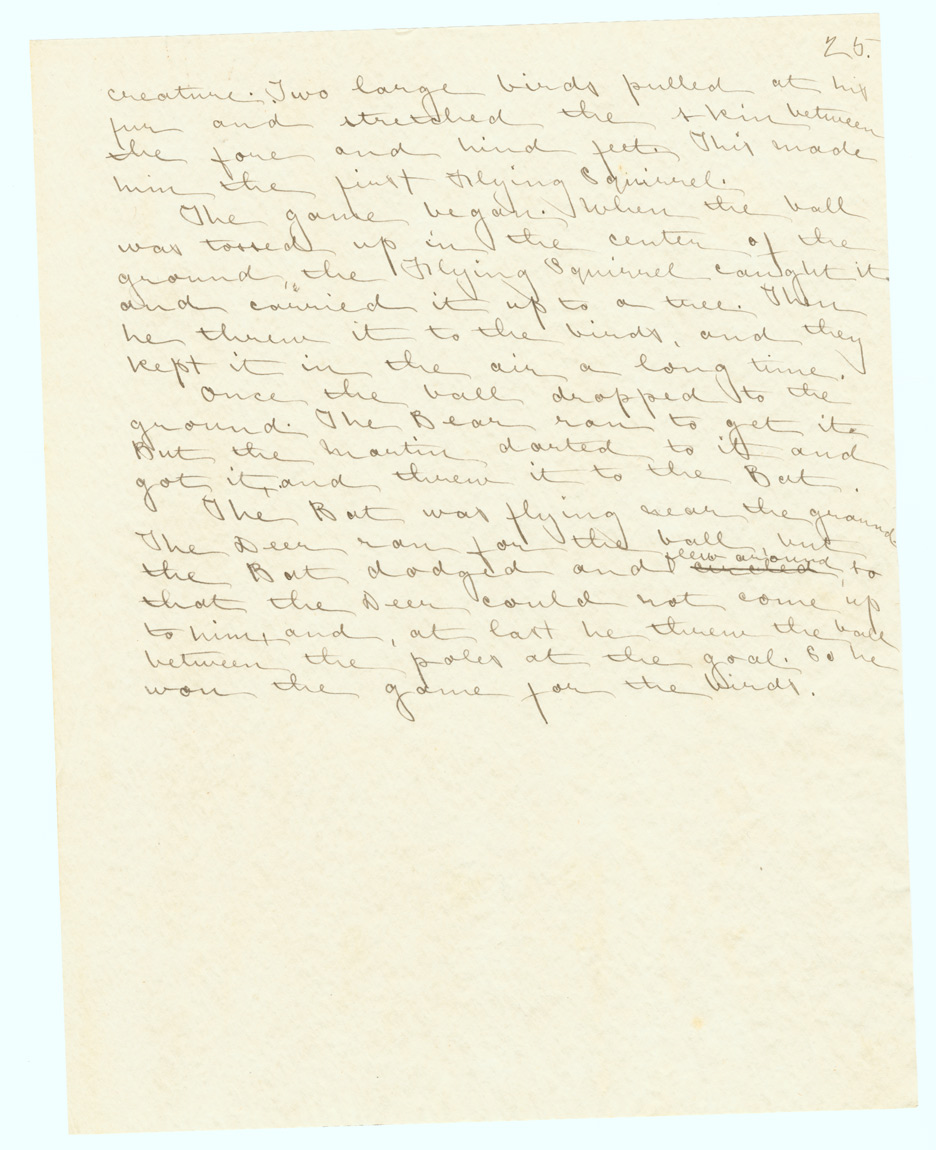 25.
creature. Two large birds pulled at his
fur and stretched the skin between
the fore and hind feet. This made
him the first Flying Squirrel.
The game began. When the ball
was tossed up in the center of the
ground, the Flying Squirrel caught it
and carried it up to a tree. Then
he threw it to the birds, and they
kept it in the air a long time.
Once the ball dropped to the
ground. The Bear ran to get it.
But the Martin darted to it and
got it, and threw it to the Bat.
The Bat was flying near the ground.
The Deer ran for the ball, but
the Bat dodged and flew around circled, so
that the Deer could not come up
to him, and, at last he threw the ball
between the poles at the goal. So he
won the game for the birds.